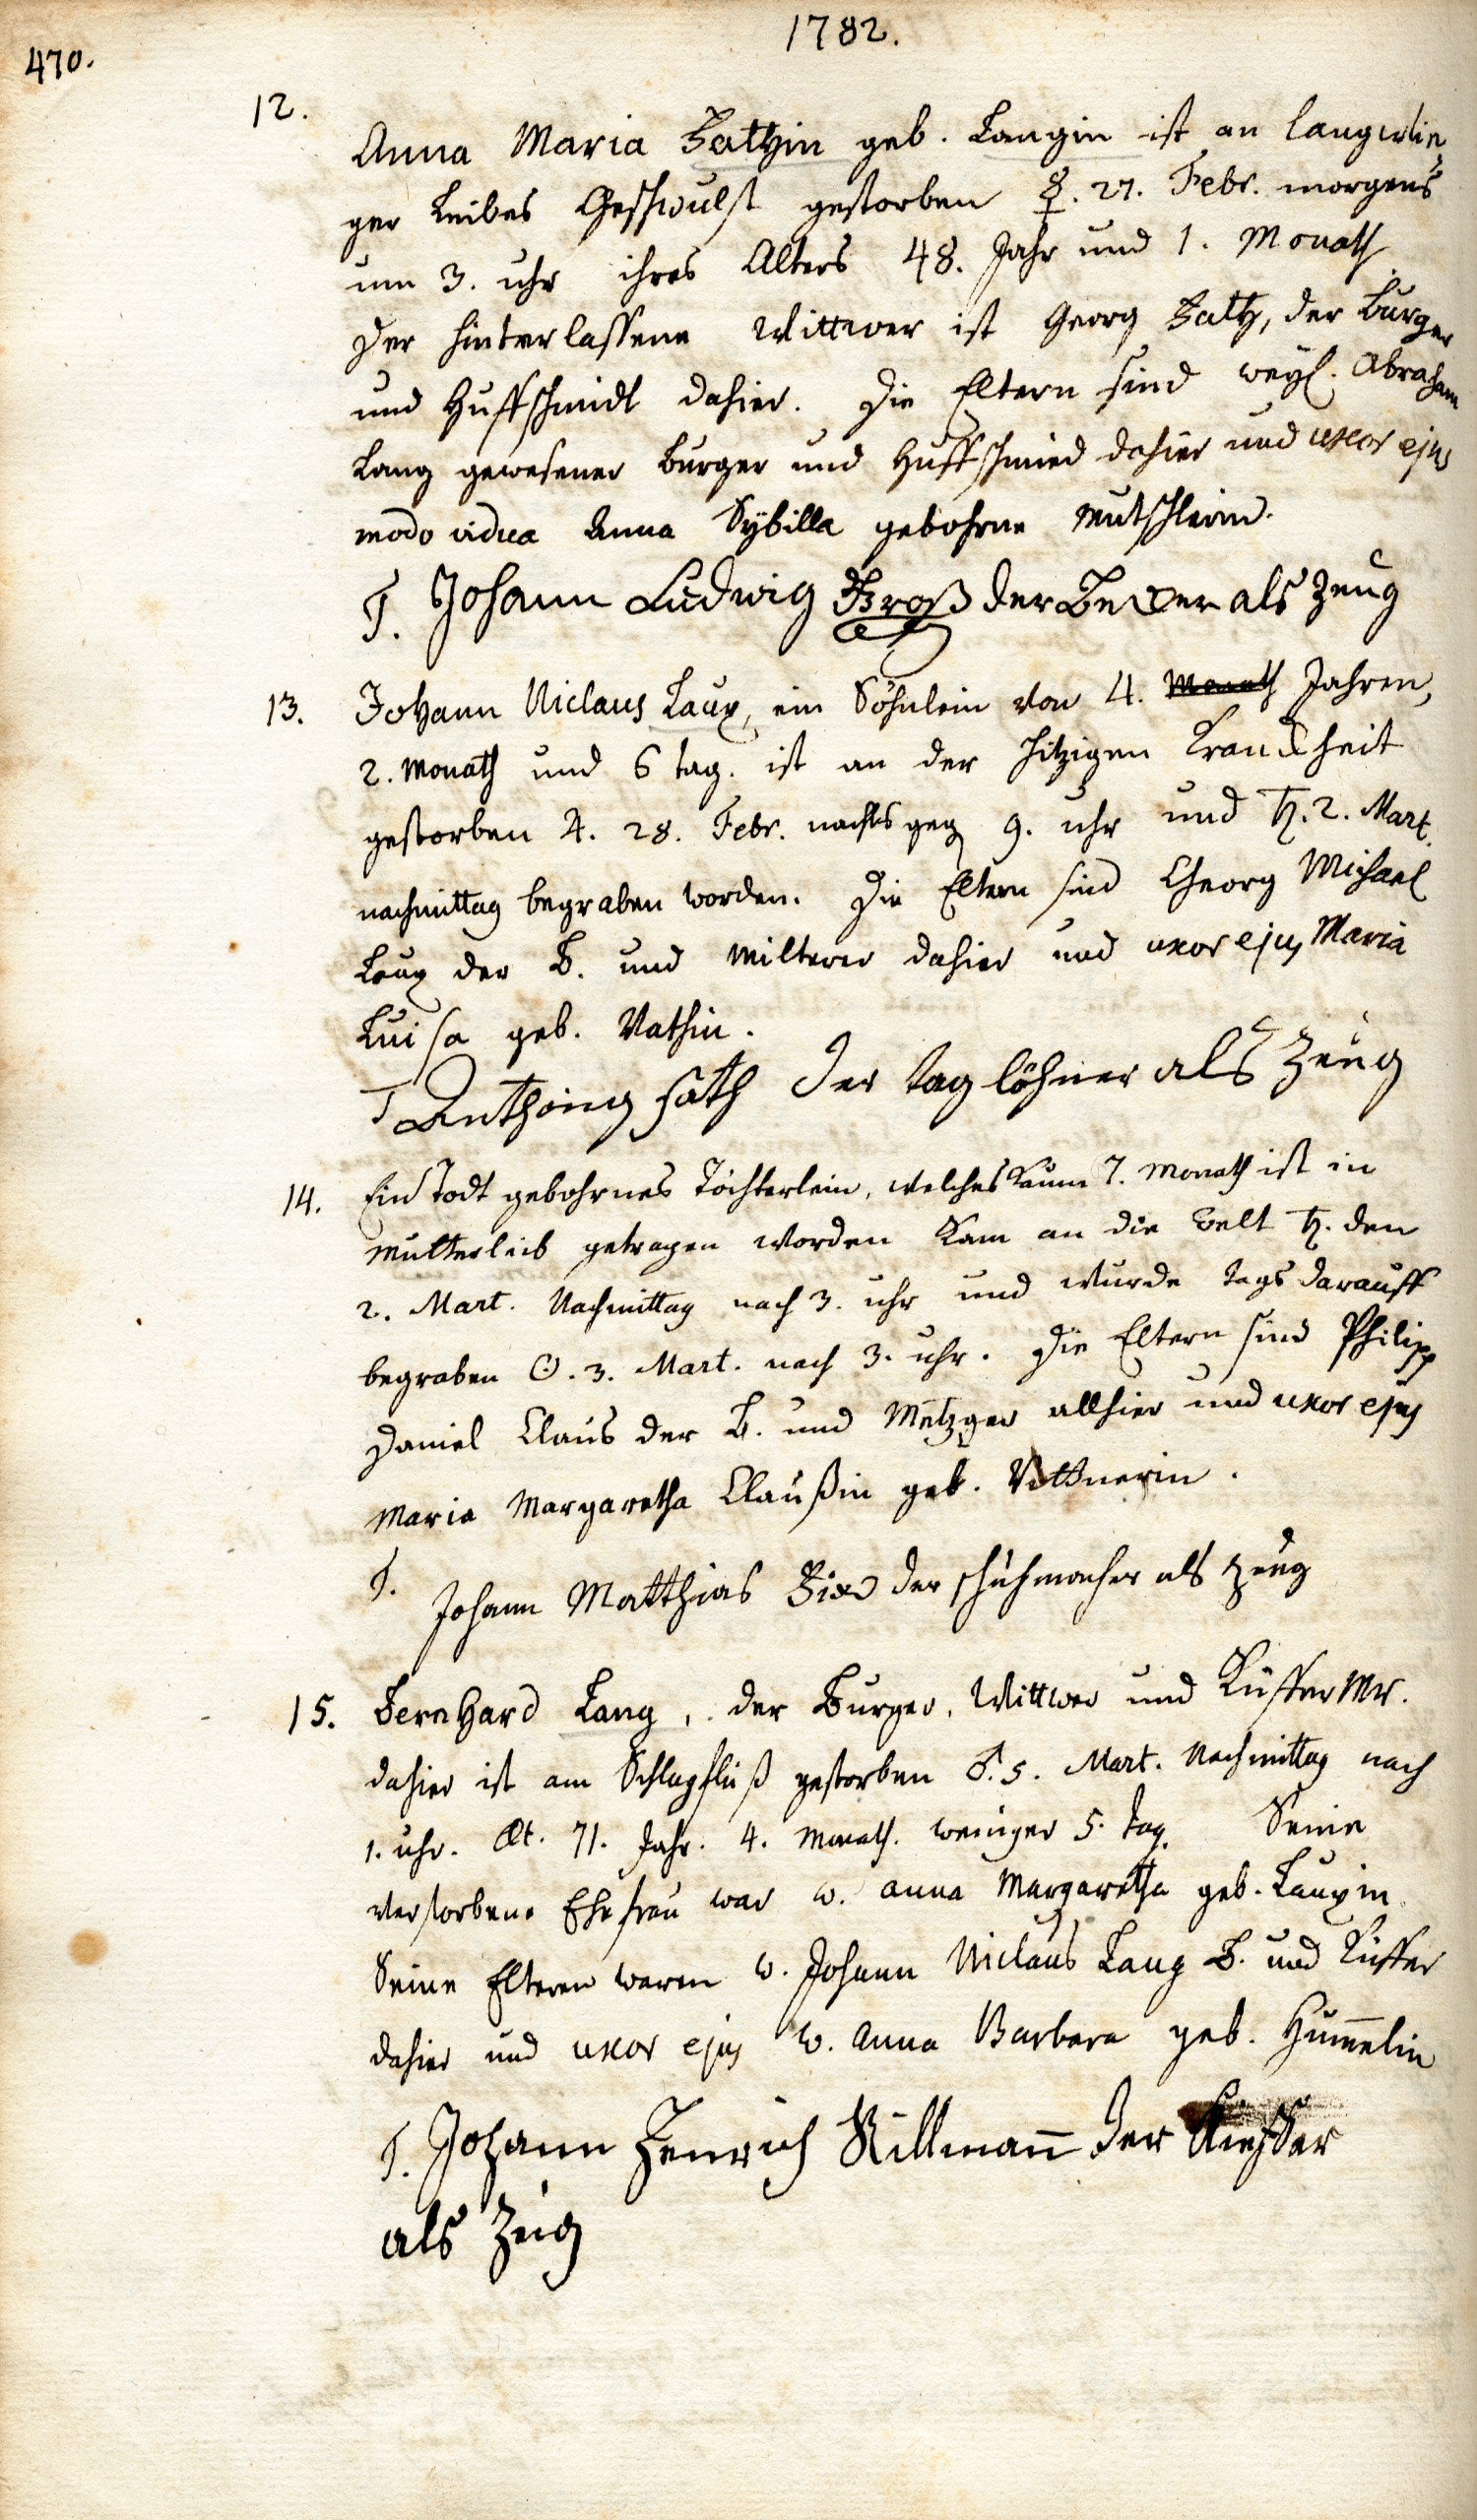 1782.
470.
12.
Anna Maria Bathin geb. Langin ist an langwie
ger Leibes Geschwulst gestorben ☿. 27. Febr. morgens
um 3. uhr ihres Alters 48. Jahr und 1. Monath
Der hinterlassene Wittwer ist Georg Bath, der burger
und Huffschmidt dahier. Die Eltern sind weyl. Abraham
Lang gewesener burger und Huffschmied dahier und uxor ejus
modo vidua Anna Sÿbilla gebohrne Mutschlerin.
T. Johann Ludwig Groß der Becker als Zeug
13. Johann Niclaus Laux, ein Söhnlein von 4. Monath Jahren,
2. Monath und 6 tag. ist an der hitzigen Kranckheit
gestorben ♃. 28. Febr. nachts geg 9. uhr und ♄. 2. Mart.
nachmittag begraben worden. Die Eltern sind Georg Michael
Laux der B. und dahier und uxor ejus Maria
Luisa geb. Vathin.
T Anthoing fath der taglöhner als Zeug
14. Ein Todt gebohrnes Töchterlein, welches kaum 7. Monath ist in
Mutterleib getragen worden kam an die welt ♄. den
2. Mart. Nachmittag nach 3. uhr und wurde tags darauff
begraben ☉. 3. Mart. nach 3. uhr. Die Eltern sind Philipp
Daniel Claus der B. und Metzger allhier und uxor ejus
Maria Margaretha Claußin geb. Vittnerin.
T. Johann Matthias der schuhmacher als zeug
15. Bernhard Lang, der Burger, Wittwer und Küffer Mr.
dahier ist am Schlagfluß gestorben ♂. 5. Mart. Nachmittag nach
1. uhr. Æt. 71. Jahr. 4. Monath. weniger 5. tag. Seine
verstorbene Ehefrau war w. Anna Margaretha geb. Lauxin
Seine Elteren waren w. Johann Niclaus Lang B. und Küffer
dahier und uxor ejus w. Anna Barbara geb. Hum̄elin
T. Johann Henrich Killman̄ der Kieffer
als Zeig